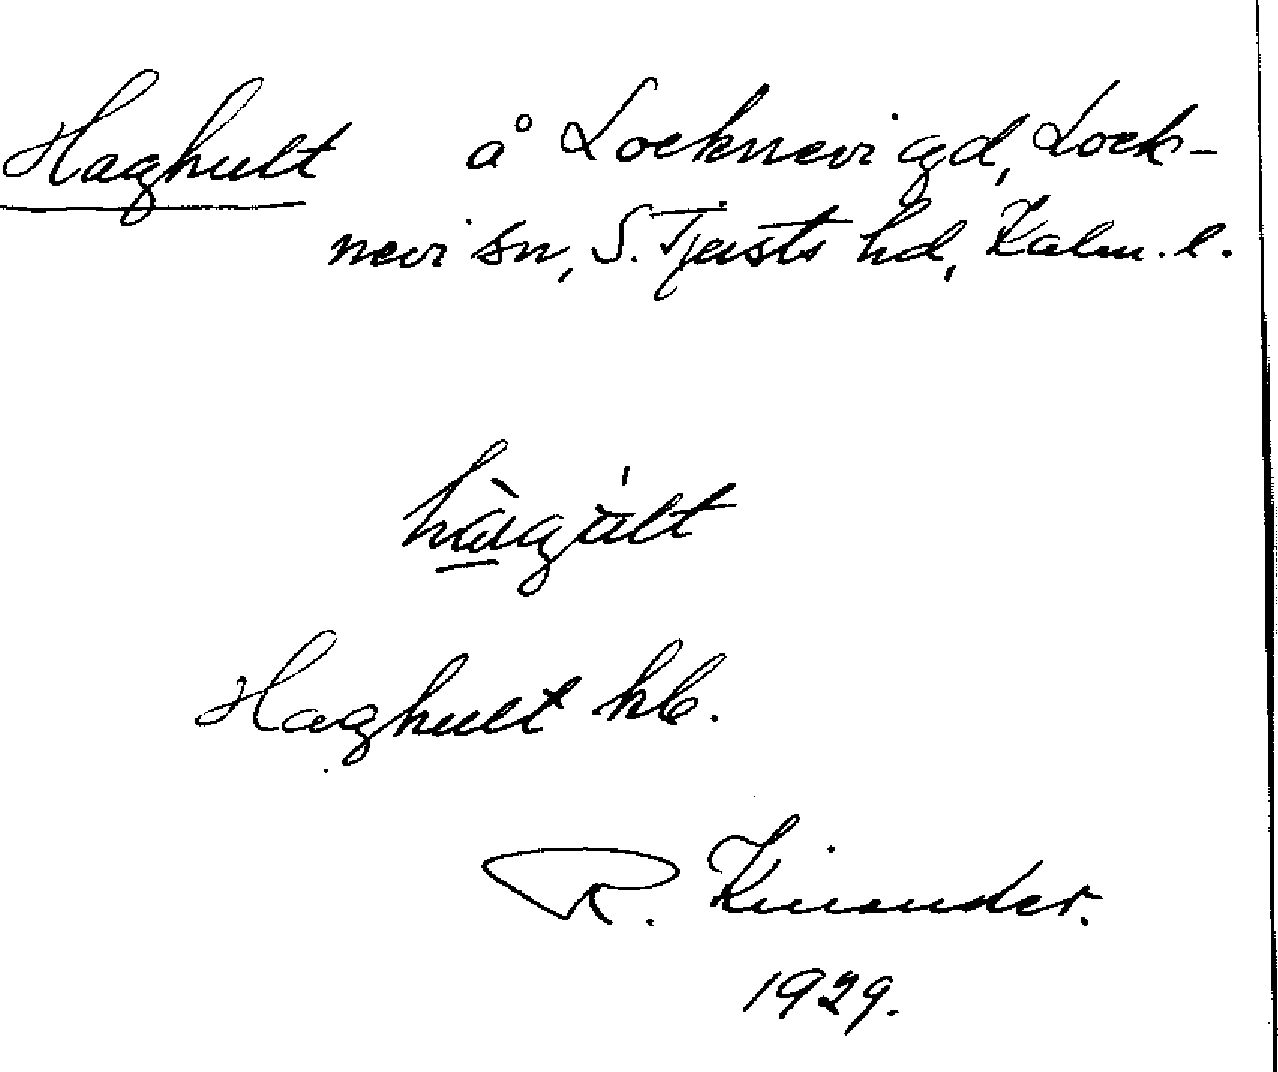 Haghult å Locknevi gd, Lock-
nevi sn, S. Tjusts hd, Kalm. l.
hàgúlt
Haghult kb.
R. Kinander.
1929.